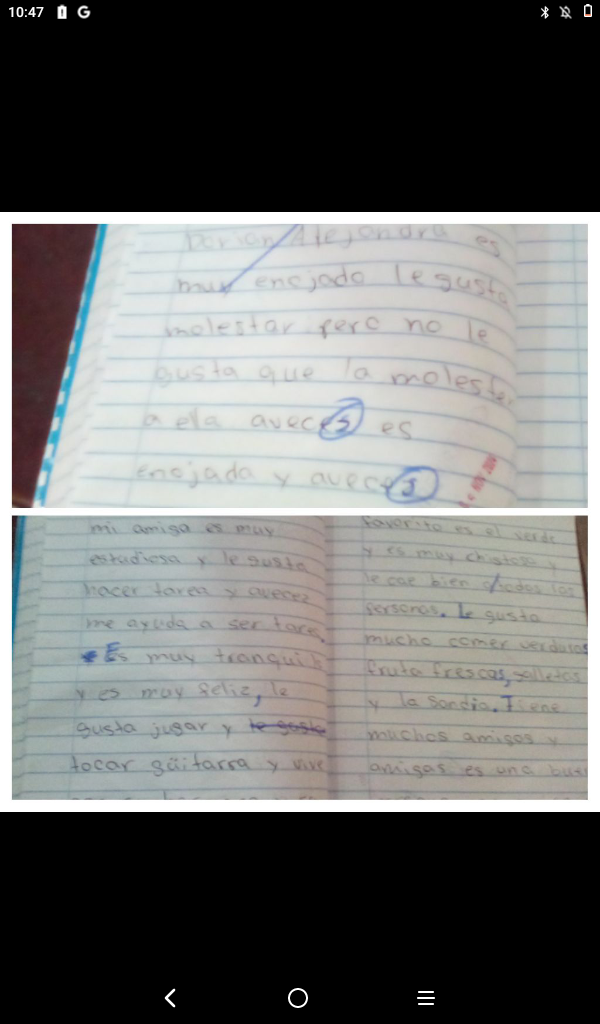 10:47
Dorian Alejandra es
muy enojado le gusta
molestar pero no le
gusta que la molesten
a ella aveces es
enojada y aveces
mi amiga es muy
estudiosa y le gusta
hacer tarea y avecez
me ayuda a ser tarea.
Es muy tranquila
y es muy feliz, le
gusta jugar y le gusta
tocar güitarra y vive
favorito es el verde
y es muy chistosa y
le cae bien a todas las
personas. Le gusta
mucho comer verduras
fruta frescas, galletas
y la sandia. Tiene
muchos amigos y
amigas es una